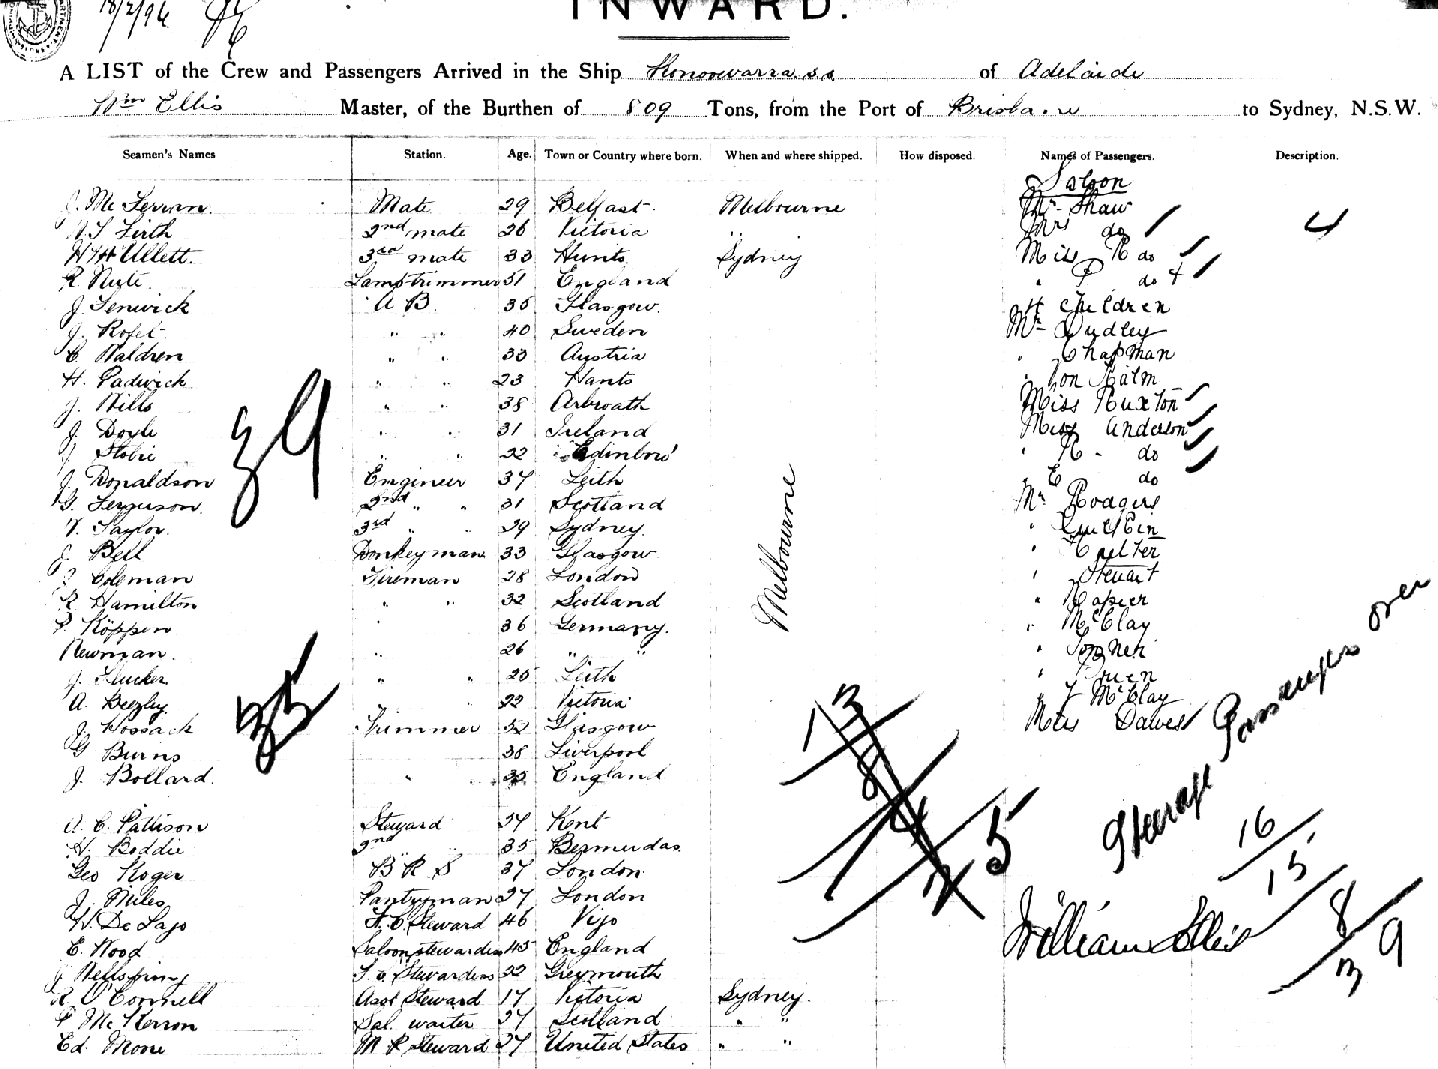 18/2/96
INWARD.
A LIST of the Crew and Passengers Arrived in the Ship Konoowarra s.s. of Adelaide
Wm Ellis Master, of the Burthen of 809 Tons, from the Port of Brisbane to Sydney, N.S.W.
Seamen's Names Station. Age. Town or Country where born. When and where shipped. How disposed. Names of Passengers. Description.
Saloon
J. Mc Ferran Mate 29 Belfast Melbourne Mr Shaw
Firth 2nd mate 26 Victoria " Mrs do 4
W H Ullett. 3rd mate 33 Hunts Sydney Miss R do
R Nute Lamptrimmer 51 England " P do 4
J. Fenwick A B. 35 Glasgow. 4 children
J. " " 40 Sweden Mr Dudley
C. Waldren " " 33 Austria " Chapman
H. Padwick " " 23 Hants " Von
J. Wills " " 38 Arbroath Miss Ruxton
J. Doyle " " 31 Ireland Miss Anderson
" " 22 Edinboro' " R - do
J. Donaldson Engineer 37 Leith " E do
G. Ferguson 2nd " " 31 Scotland Mr Rodgers
Taylor 3rd " " 29 Sydney. "
J. Bell Donkeyman 33 Glasgow "
Coleman Fireman 28 London " Steuart
R. Hamilton " " 32 Scotland " Napier
P. Köppen " 36 Germany. " McClay
Newman. " 26 " " "
J. Tucker " " 25 Leith "
A. Beezley " 22 Victoria " F McClay
J. Hossack Trimmer 52 Glasgow Miss Dawes
G Burns 38 Liverpool
J. Bollard. " England
Melbourne
39
35
13
8
4
25
Steerage Passengers over
A. C. Pattison Steward 27 Kent 16
H. Boddie 2nd " 35 Bermudas 15
Geo Roger B R S 37 London
J. Miles Pantryman 27 London 8
W. De Lajo F. C. Steward 46 Vigo William Ellis
E. Wood Saloon stewardess 45 England 39
J Wellspring F. C. Stewardess 22 Greymouth
R. O'Connell Asst Steward 17 Victoria Sydney.
P Mc Kerron Sal. waiter 27 Scotland " "
Ed. Mone M R Steward 27 United States " "